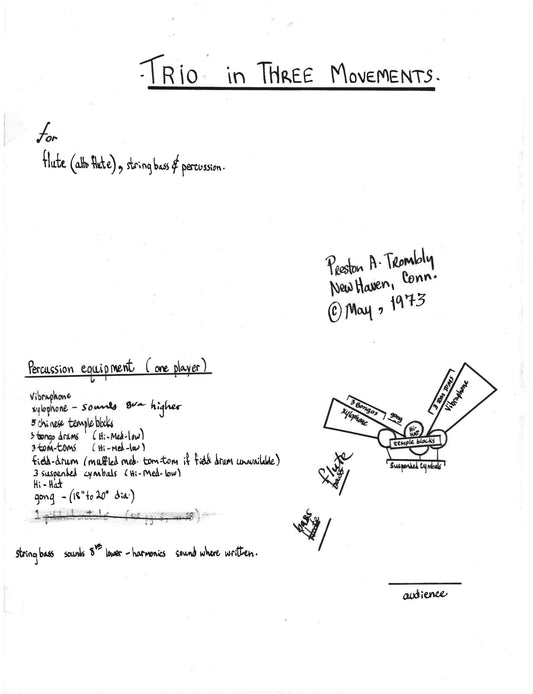 ·TRIO in THREE MOVEMENTS.
for
flute (alto flute), string bass & percussion.
Preston A. Trombly
New Haven, Conn.
© May, 1973
Percussion equipment (one player)
Vibraphone
xylophone - sounds 8va higher
5 chinese temple blocks
3 bongo drums (Hi-Med-low)
3 tom-toms (Hi-Med-low)
field-drum (muffled med. tomtom if field drum unavailable)
3 suspended cymbals (Hi-Med-low)
Hi-Hat
gong - (18" to 20" dia.)
string bass sounds 8va lower - harmonics sound where written.
3 bongos
xylophone
gong
Hi-Hat
3 tom toms
Vibraphone
temple blocks
suspended cymbals
flute
bass
bass
flute
audience